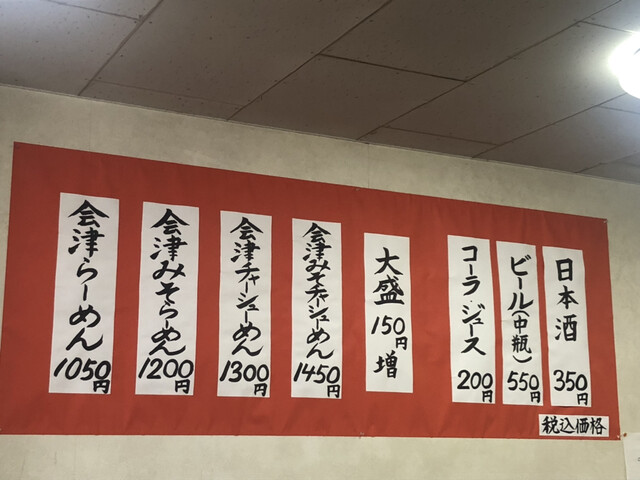 日本酒
350円
ビール(中瓶)
550円
コーラ・ジュース
200円
大盛
150円
増
会津みそチャーシューめん
1450円
会津チャーシューめん
1300円
会津みそらーめん
1200円
会津らーめん
1050円
税込価格